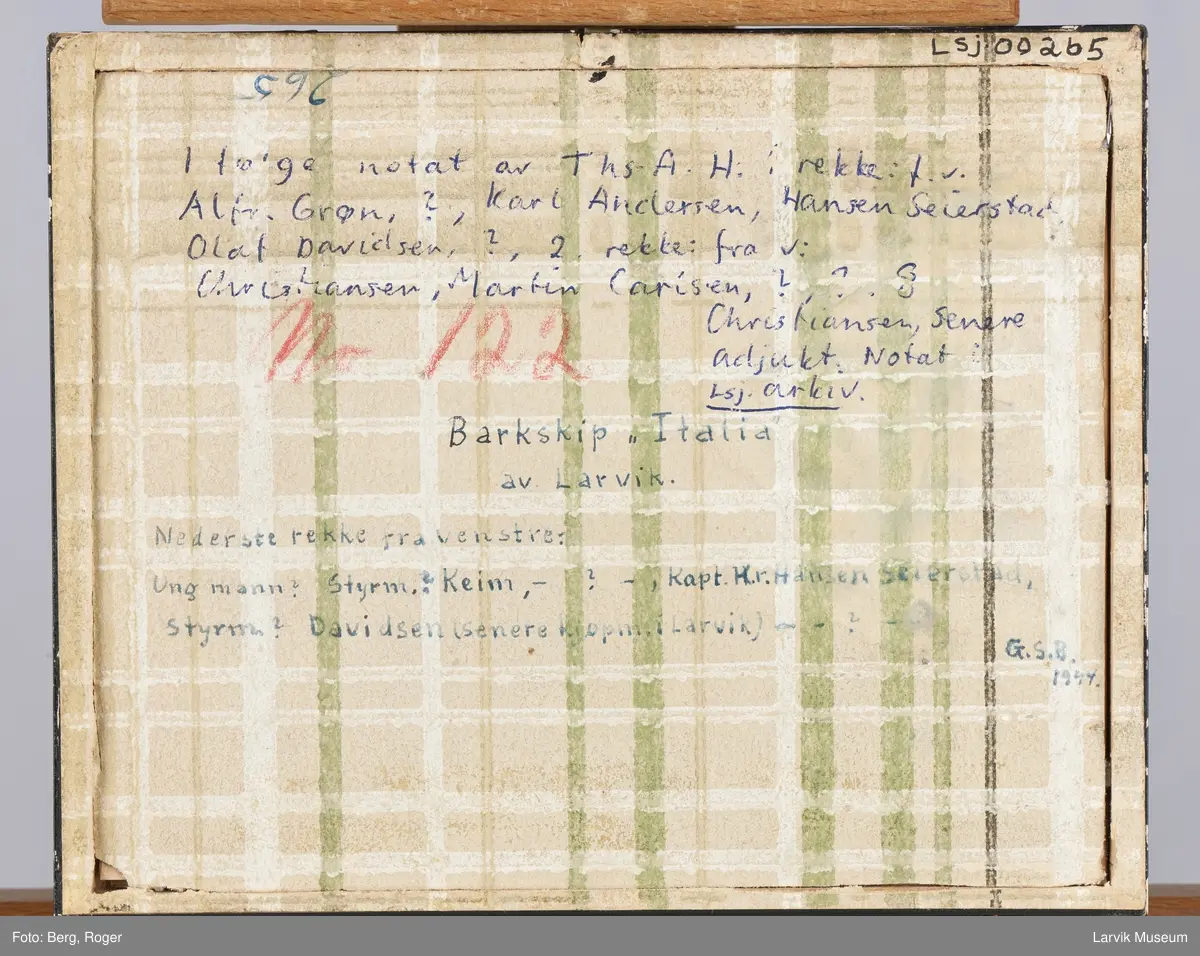 Lsj 00265
265
I følge notat av Ths. A. H. i rekke: f.v.
Alfr. Grøn, ?, Karl Andersen, Hansen Seierstad,
Olaf Davidsen, ?, 2. rekke: fra v:
Christiansen, Martin Carlsen, ?, ?. 8
Christiansen, senere
adjukt. Notat i
Lsj. arkiv.
Nr 122
Barkskip „Italia"
av Larvik.
Nederste rekke fra venstre:
Ung mann? Styrm.? Keim, – ? –, Kapt. Kr. Hansen Seierstad,
Styrm? Davidsen (senere kjøpm. i Larvik) – – ? –
G.S.B.
1944.
Foto: Berg, Roger
Larvik Museum